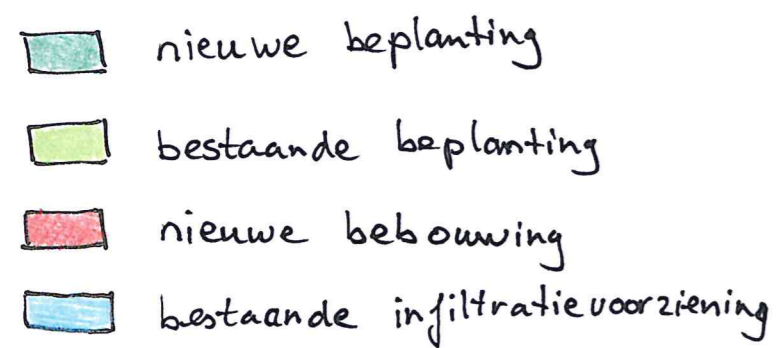 nieuwe beplanting
bestaande beplanting
nieuwe bebouwing
bestaande infiltratievoorziening